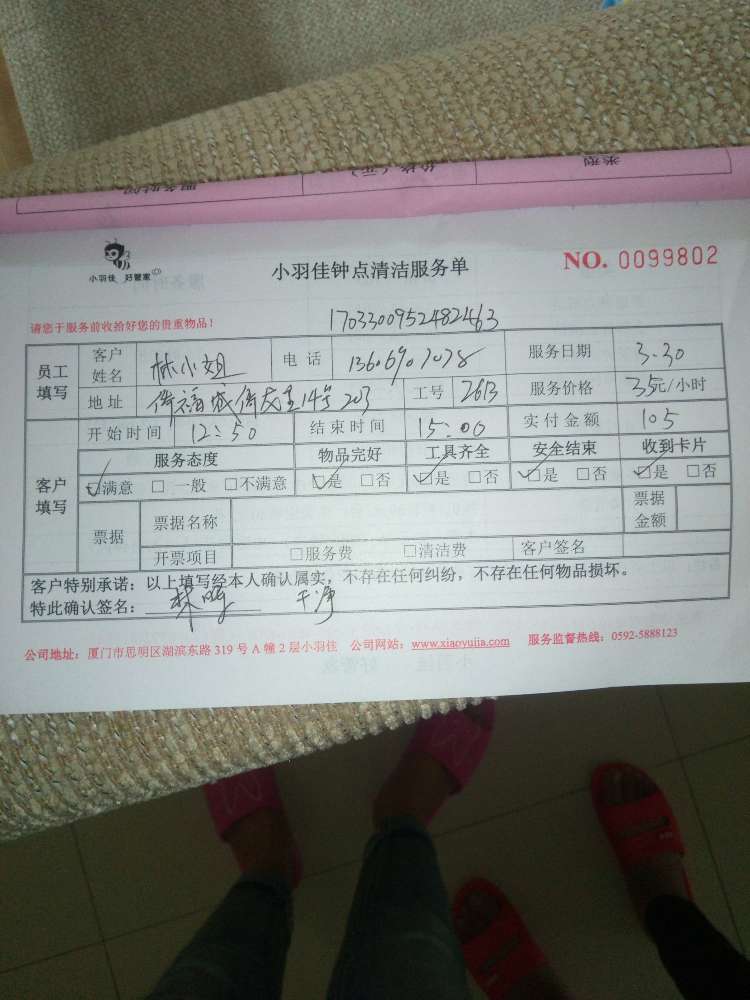 小羽佳 好管家
小羽佳钟点清洁服务单
NO. 0099802
请您于服务前收给好您的贵重物品！
1703300952482463
员工填写 客户姓名 林小姐 电话 服务日期 3.30
地址 14号203 工号 2613 服务价格 35元/小时
客户填写 开始时间 12:50 结束时间 15:00 实付金额 105
服务态度 物品完好 工具齐全 安全结束 收到卡片
☑满意 □一般 □不满意 ☑是 □否 ☑是 □否 ☑是 □否 ☑是 □否
票据 票据名称 票据金额
开票项目 □服务费 □清洁费 客户签名
客户特别承诺：以上填写经本人确认属实，不存在任何纠纷，不存在任何物品损坏。
特此确认签名： 林 干净
公司地址：厦门市思明区湖滨东路 319 号 A 幢 2 层小羽佳 公司网站：www.xiaoyujia.com 服务监督热线：0592-5888123